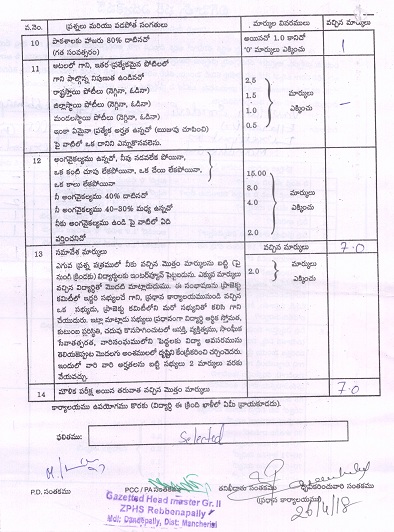 వ.నెం. ప్రశ్నలు మరియు పడపోత సంగతులు మార్కుల వివరములు వచ్చిన మార్కులు
10 పాఠశాలకు హాజరు 80% దాటినదో అయినదో 1.0 కానిదో 1
(గత సంవత్సరం) '0' మార్కులు ఎక్కించు
11 ఆటలలో గాని, ఇతర ప్రత్యేకమైన పోటీలలో
గాని పాల్గొన్న నిపుణత ఉండినదో
రాష్ట్రస్థాయి పోటీలు (నెగ్గినా, ఓడినా) 2.5
జిల్లాస్థాయి పోటీలు (నెగ్గినా, ఓడినా) 1.5 మార్కులు –
మండలస్థాయి పోటీలు (నెగ్గినా, ఓడినా) 1.0 ఎక్కించు
ఇంకా ఏమైనా ప్రత్యేక అర్హత ఉన్నదో (ఋజువు చూపించి) 0.5
పై వాటిలో ఒక దానిని ఎన్నుకొనవలెను.
12 అంగవైకల్యము ఉన్నదో, నీవు నడవలేక పోయినా,
ఒక కంటి చూపు లేకపోయినా, ఒక చేయి లేకపోయినా, 15.00
ఒక కాలు లేకపోయినా 8.0
నీ అంగవైకల్యము 40% దాటినదో 4.0 మార్కులు
నీ అంగవైకల్యము 40-30% మధ్య ఉన్నదో ఎక్కించు
నీకు అంగవైకల్యము ఉండి పై వాటిలో ఏది 2.0
వర్తించనిదో
13 సమావేశ మార్కులు వచ్చిన మార్కులు 7.0
ఎగువ ప్రశ్న పత్రములో నీకు వచ్చిన మొత్తం మార్కులను బట్టి (పై
నుండి క్రిందకు) విద్యార్థులకు ఇంటర్వ్యూనే పెట్టబడును. ఎక్కువ మార్కులు 2.0 మార్కులు
వచ్చిన విద్యార్థితో మొదటి మాట్లాడుదుము. ఈ సంభాషణను ప్రాజెక్టు ఎక్కించు
కమిటీలో ఇద్దరి సభ్యులచే గాని, ప్రధాన కార్యాలయమునుండి వచ్చిన
ఒక సభ్యుడు, ప్రాజెక్టు కమిటీలోని మరో సభ్యునితో కలిసి గాని
చేయుదురు. ఇట్లా మాట్లాడు సభ్యులు ప్రధానంగా విద్యార్థి ఆర్థిక స్తోమత,
కుటుంబ పరిస్థితి, చదువు కొనసాగించుటలో ఆసక్తి, వ్యక్తిత్వము, సాంఘిక
సేవాతత్పరత, వారిసంఘములోని పెద్దలకు విద్యా అవసరమును
తెలియజెప్పుట మొదలగు అంశములలో దృష్టిని కేంద్రీకరించి చర్చించెదరు.
ఇందులో వారి వారి అర్హతలను బట్టి సభ్యులు 2 మార్కులు వరకు
వేయవచ్చు.
14 మౌఖిక పరీక్ష అయిన తరువాత వచ్చిన మొత్తం మార్కులు 7.0
కార్యాలయము ఉపయోగము కొరకు (విద్యార్థి ఈ క్రింది ఖాళీలో ఏమీ వ్రాయకూడదు).
ఫలితము: Selected
P.D. సంతకము PCC / PA సంతకము తనిఖీదారు సంతకము ధృవీకరించువారి సంతకము
(ప్రధాన కార్యాలయము)
26/4/18
Gazetted Head master Gr. II
ZPHS Rebbonapally
Mdl: Dandepally, Dist: Mancherial